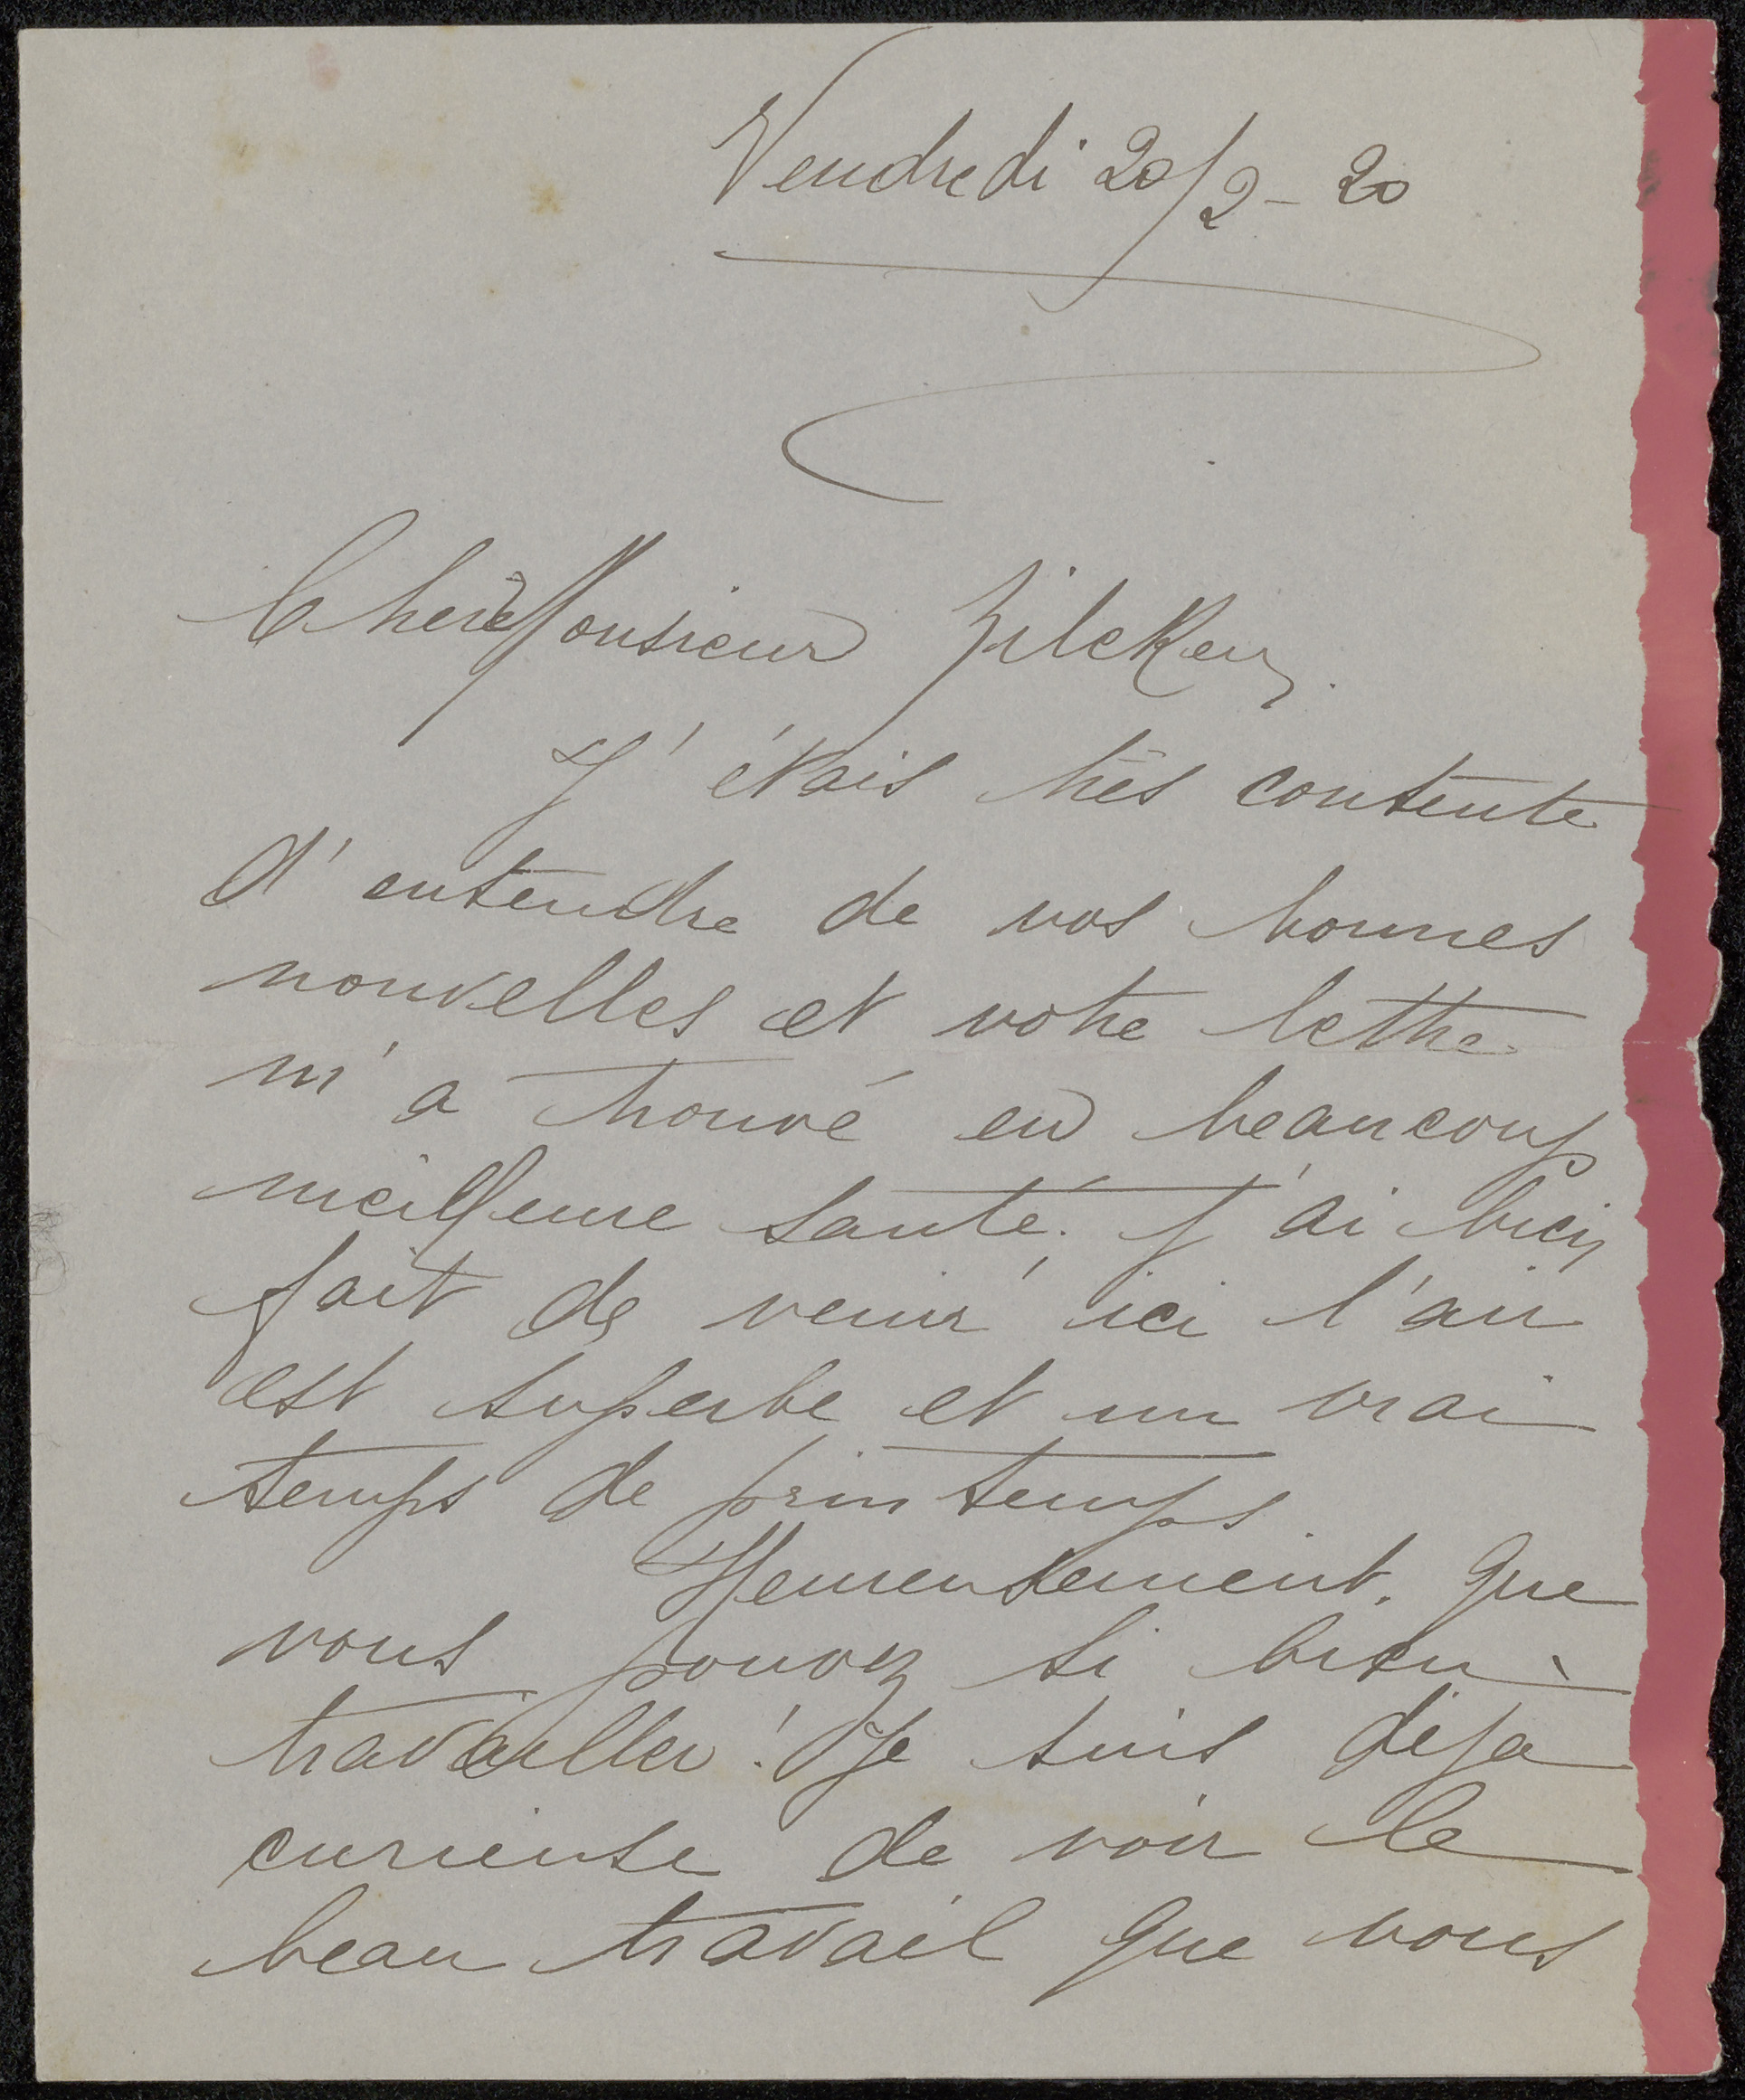 Vendredi 20/2 - 20
Chère Monsieur Zilcken.
J'étais très contente
d'entendre de vos bonnes
nouvelles et votre lettre
m'a trouvé en beaucoup
meilleure santé. J'ai bien
fait de venir ici l'air
est superbe et un vrai
temps de printemps.
Heureusement. que
vous pouvez si bien
travailler! Je suis déja
curieuse de voir le
beau travail que vous